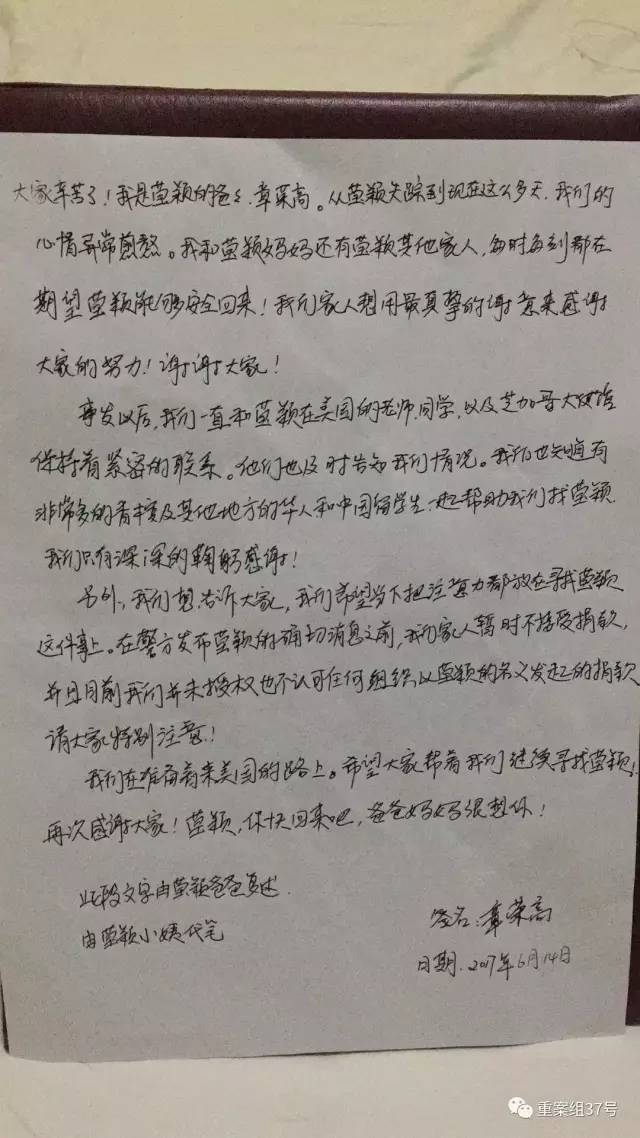 大家辛苦了！我是莹颖的爸爸，章荣高。从莹颖失踪到现在这么多天，我们的
心情异常煎熬。我和莹颖妈妈还有莹颖其他家人，每时每刻都在
期望莹颖能够安全回来！我们家人想用最真挚的谢意来感谢
大家的努力！谢谢大家！
事发以后，我们一直和莹颖在美国的老师、同学，以及芝加哥大使馆
保持着紧密的联系。他们也及时告知我们情况。我们也知道有
非常多的香槟及其他地方的华人和中国留学生一起帮助我们找莹颖
我们只有深深的鞠躬感谢！
另外，我们想告诉大家，我们希望当下把注意力都放在寻找莹颖
这件事上。在警方发布莹颖的确切消息之前，我们家人暂时不接受捐款，
并且目前我们并未授权也不认可任何组织以莹颖的名义发起的捐款
请大家特别注意！
我们在准备着来美国的路上。希望大家帮着我们继续寻找莹颖！
再次感谢大家！莹颖，你快回来吧，爸爸妈妈很想你！
此段文字由莹颖爸爸口述.
由莹颖小姨代笔
签名：章荣高
日期.2017年6月14日
重案组37号